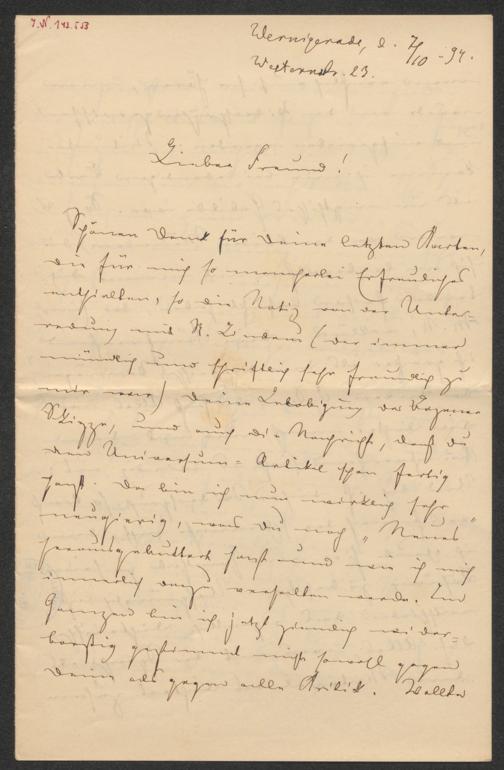 J.N. 142.553
Wernigerode, d. 7/10 - 94.
Westernstr. 23.
Lieber Freund!
Schönen Dank für Deine letzten Karten,
die für mich so mancherlei Erfreuliches
enthielten, so die Notiz von der Unter-
redung mit N. Lindau (der immer
mündlich und schriftlich sehr freundlich zu
mir war) Deine Belobigung der Bozener
Skizze, und auch die Nachricht, daß du
den Universum-Artikel schon fertig
hast. Da bin ich nun wirklich sehr
neugierig, was Du noch "Neues"
herausgebuttert hast und wie ich mich
innerlich dazu verhalten werde. Im
Ganzen bin ich jetzt ziemlich wider-
borstig gestimmt nicht sowohl gegen
Deine als gegen alle Kritik. Wollte